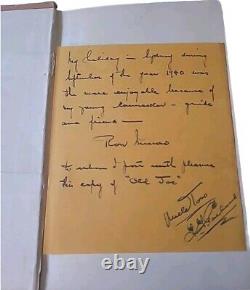 My holiday in Sydney during
September of the year 1940 was
the more enjoyable because of
my young - guide
and friend —
Ron
to whom I post with pleasure
this copy of "Old Joe"
Uncle Tom